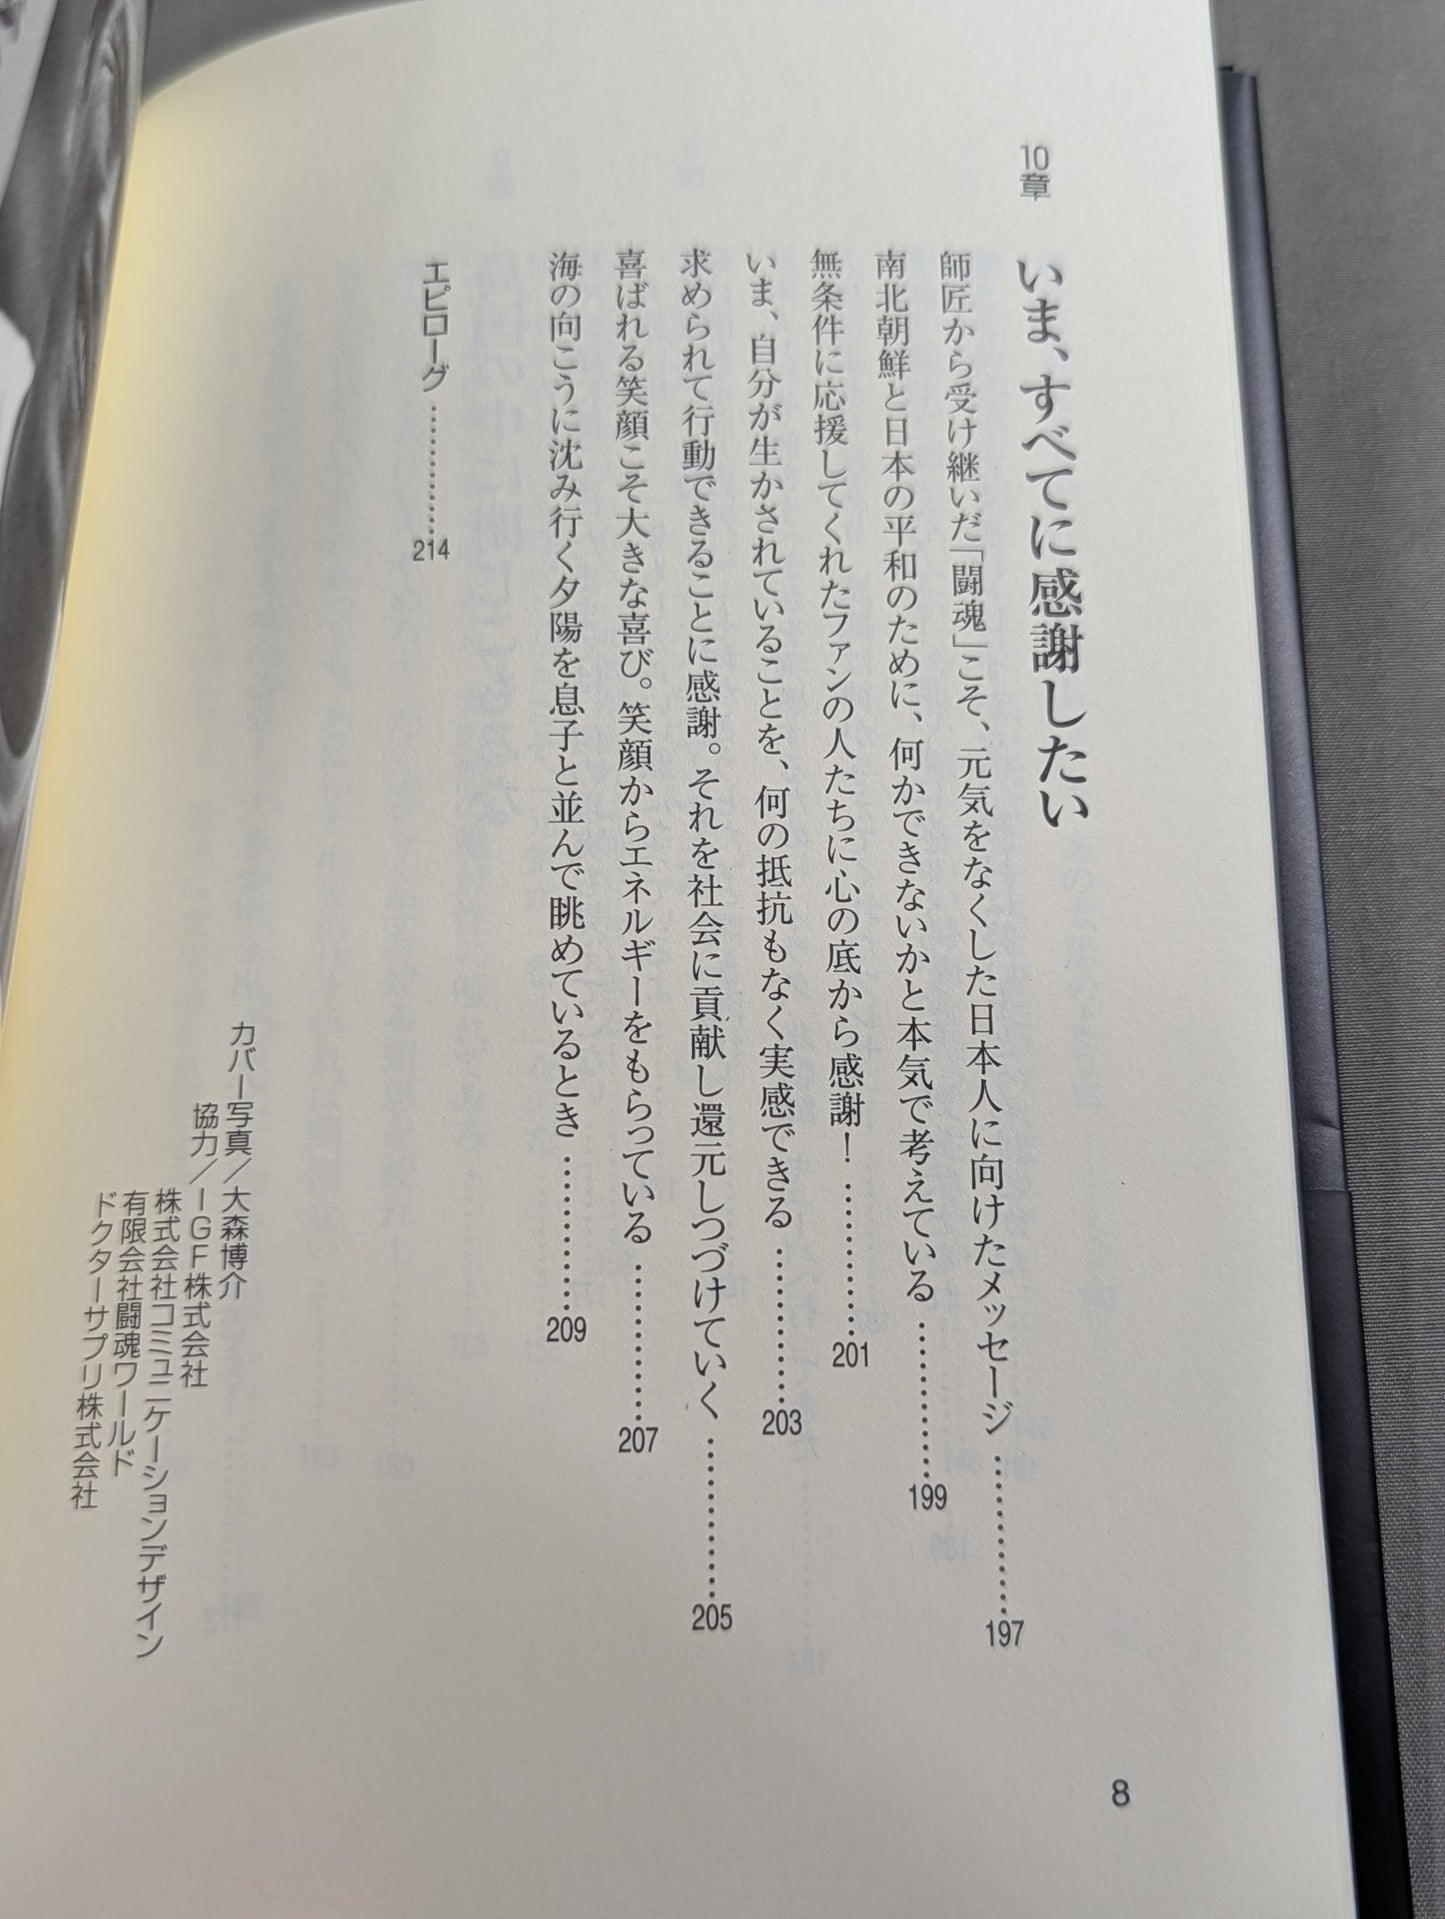 10章 いま、すべてに感謝したい
師匠から受け継いだ「闘魂」こそ、元気をなくした日本人に向けたメッセージ…………197
南北朝鮮と日本の平和のために、何かできないかと本気で考えている…………199
無条件に応援してくれたファンの人たちに心の底から感謝！…………201
いま、自分が生かされていることを、何の抵抗もなく実感できる…………203
求められて行動できることに感謝。それを社会に貢献し還元しつづけていく…………205
喜ばれる笑顔こそ大きな喜び。笑顔からエネルギーをもらっている…………207
海の向こうに沈み行く夕陽を息子と並んで眺めているとき…………209
エピローグ…………214
カバー写真／大森博介
協力／IGF株式会社
株式会社コミュニケーションデザイン
有限会社闘魂ワールド
ドクターサプリ株式会社
8